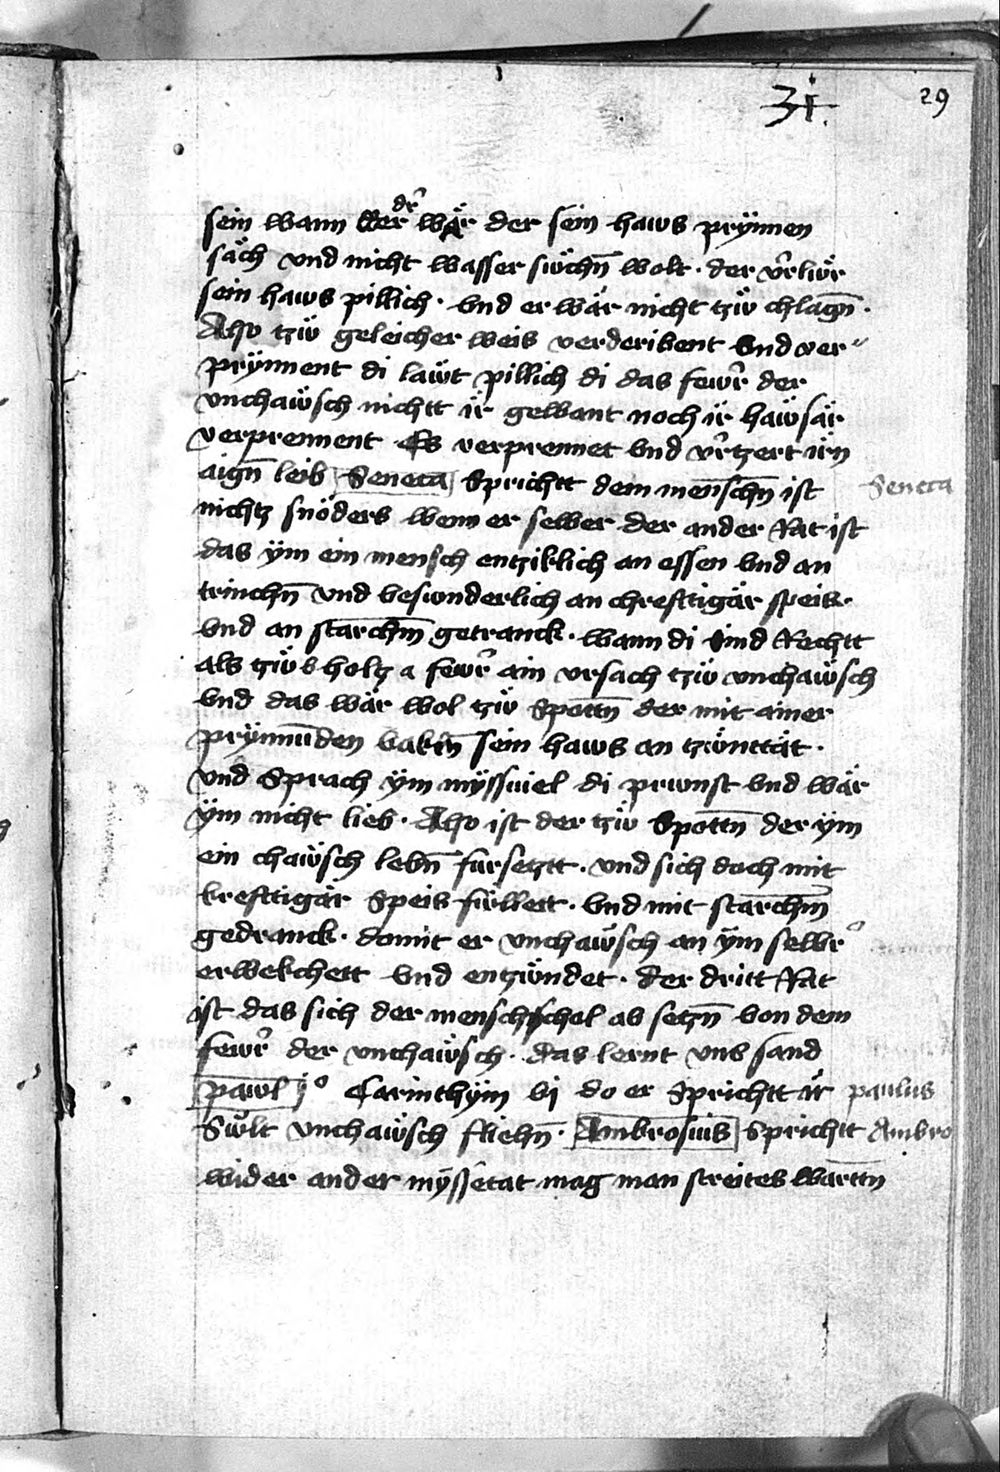 31.
29
dˀ
sein wann wer wår der sein haws prÿnnen
såch vnd nicht wasser sũchn̄ wolt · der vˀrlür
sein haws pillich · vnd er wår nicht tzw̋ chlagn̄ ·
Also tzw̋ geleicher weis verderibent vnd ver⸗
prÿnnent di låwt pillich di das fewˀr der
vnchaẅsch nichtt ir̈ gwant noch ir̈ haẅsår
verprennent Es verprennet vnd vˀrtzert irn̈
aign̄ leib Seneca Sprichtt dem menschn̄ ist
Seneca
nichtz snöders wenn er selber der ander Rat ist
das ÿm ein mensch entziklich an essen vnd an
trinchn̄ vnd besunderlich an chrefttigår speis ·
vnd an starchm̄ getranck · wann di sind Rechtt
als tzw̋ holtz a fewˀr ain vrsach tzw̋ vnchaẅsch
vnd das wår wol tzw̋ Spottn̄ der mit ainer
prÿnnūden sein haws an tzẅnttåt ·
vnd Sprach ÿm mÿssuiel di prunst vnd wår
ÿm nicht lieb · Also ist der tzẅ Spottn̄ der ÿm
ein chaẅsch lebn̄ fürsetztt · vnd sich doch mit
krefttigår Speis füllett · vnd mit starchm̄
gedranck · domit er vnchaẅsch an ÿm selbˀr
erwekchett vnd entzẅndet · der dritt Rat
ist das sich der mensch schol ab setzn̄ von dem
fewˀr der vnchaẅsch · das lernt vns sand
pawl j° Carinthÿm vj do er Sprichtt ir̈
paulus
Sw̋lt vnchaẅsch fliehn̄ · Ambrosius Sprichtt
Ambro
wider ander mÿssetat mag man streites warttn̄